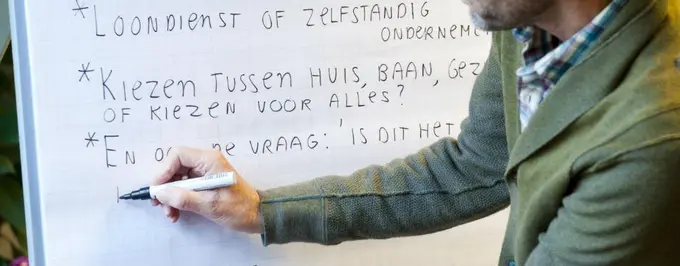 *LOONDIENST OF ZELFSTANDIG
ONDERNEME
*KIEZEN TUSSEN HUIS, BAAN, GEZ
OF KIEZEN VOOR ALLES?
*EN VRAAG: 'IS DIT HET